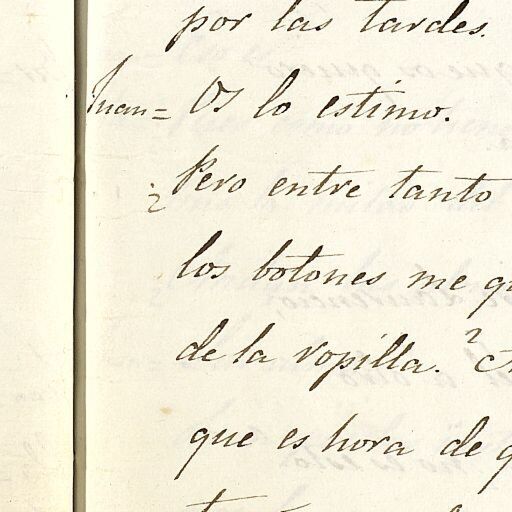 por las tardes.
Juan = Os lo estimo.
¿Pero entre tanto
los botones me
de la ropilla. ?
que es hora de